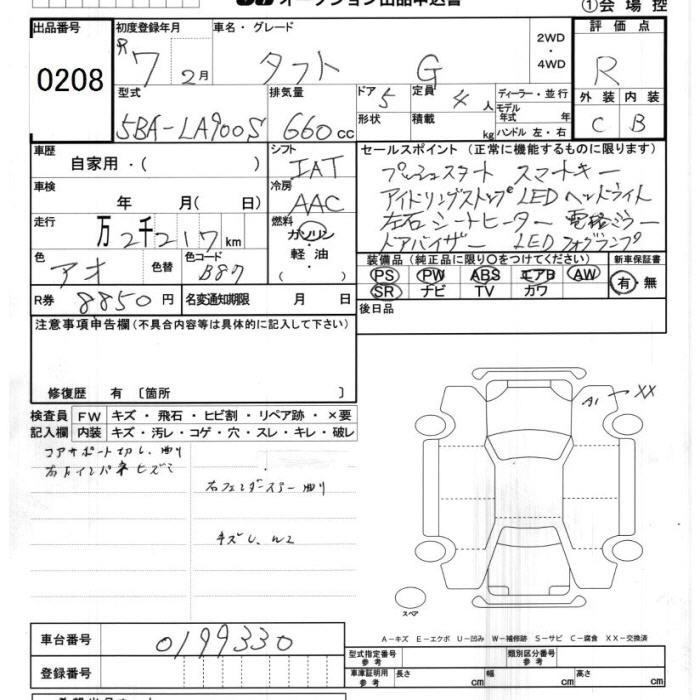 オークション出品申込書
①会場控
出品番号
0208
初度登録年月
R 7 2月
車名・グレード
タフト G
2WD
・
4WD
評価点
R
型式
5BA-LA900S
排気量
660cc
ドア
5
形状
定員
4人
積載
kg
ディーラー・並行
モデル年式 年
ハンドル 左・右
外装 内装
C B
車歴
自家用・( )
シフト
IAT
セールスポイント(正常に機能するものに限ります)
プッシュスタート スマートキー
アイドリングストップ LEDヘッドライト
左右シートヒーター 電格ミラー
ドアバイザー LEDフォグランプ
車検
年 月( 日)
冷房
AAC
走行
万2千217km
燃料
ガソリン
・
軽油
・
( )
色
アオ
色替
色コード
B87
装備品(純正品に限り○をつけてください)
PS PW ABS エアB AW
SR ナビ TV カワ
新車保証書
有・無
R券 8850円
名変通知期限 月 日
後日品
注意事項申告欄(不具合内容等は具体的に記入して下さい)
修復歴 有〔箇所 〕
検査員記入欄
FW キズ・飛石・ヒビ割・リペア跡・×要
内装 キズ・汚レ・コゲ・穴・スレ・キレ・破レ
コアサポート切し、曲り
右フェンダーステー曲り
キズし、W2
A1 XX
スペア
A-キズ E-エクボ U-凹み W-補修跡 S-サビ C-腐食 XX-交換済
車台番号
0199330
登録番号
型式指定番号
参考
類別区分番号
参考
車庫証明用
参考
長さ cm 幅 cm 高さ cm